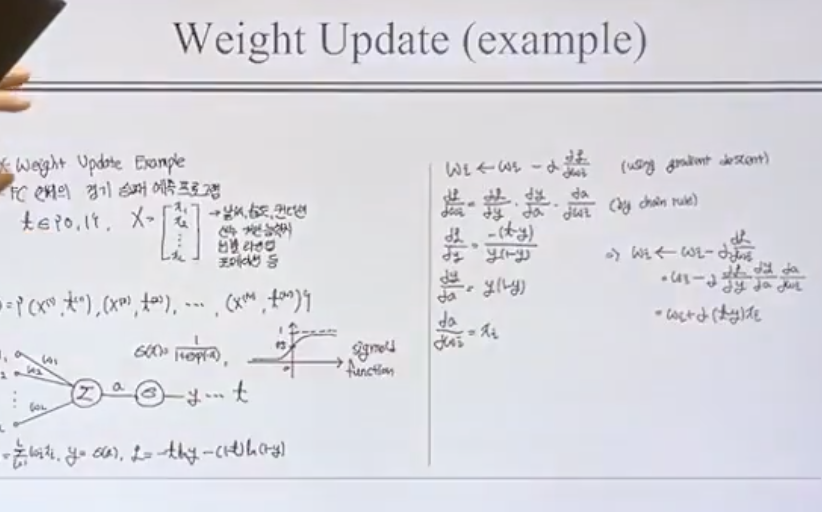 Weight Update (example)
Weight Update Example
FC 안체의 경기 승패 예측 프로그램
t ∈ {0, 1}, X = [x₁ x₂ ⋮ x_L] → 날씨, 습도, 컨디션
선수
선발 라인업
포메이션 등
= {(X⁽¹⁾, t⁽¹⁾), (X⁽²⁾, t⁽²⁾), ..., (X⁽ᴺ⁾, t⁽ᴺ⁾)}
σ(a) = 1/(1+exp(-a)),
sigmoid
function
w₁
w₂
⋮
w_L
Σ a σ y ... t
= Σ wᵢxᵢ, y = σ(a), L = -t ln y - (1-t) ln(1-y)
wᵢ ← wᵢ - α dL/dwᵢ (using gradient descent)
dL/dwᵢ = dL/dy · dy/da · da/dwᵢ (by chain rule)
dL/dy = -(t-y)/y(1-y)
dy/da = y(1-y)
da/dwᵢ = xᵢ
⇒ wᵢ ← wᵢ - α dL/dwᵢ
= wᵢ - α dL/dy dy/da da/dwᵢ
= wᵢ + α(t-y)xᵢ